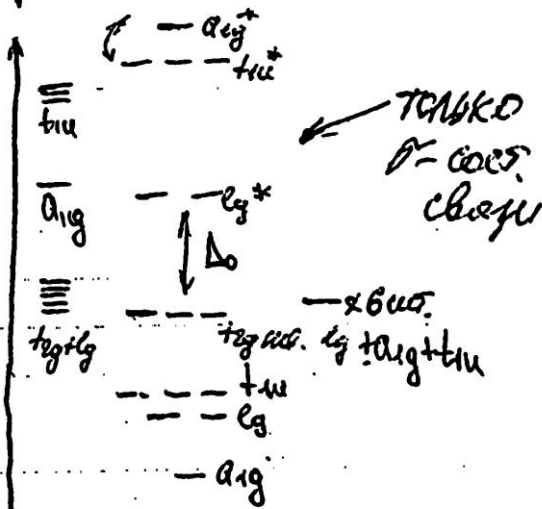 a₁g*
t₁u*
t₁u
только
σ-сост.
связи
a₁g
eg*
Δ₀
×6 шт.
t₂g+eg
t₂g
eg+a₁g+t₁u
t₁u
eg
a₁g